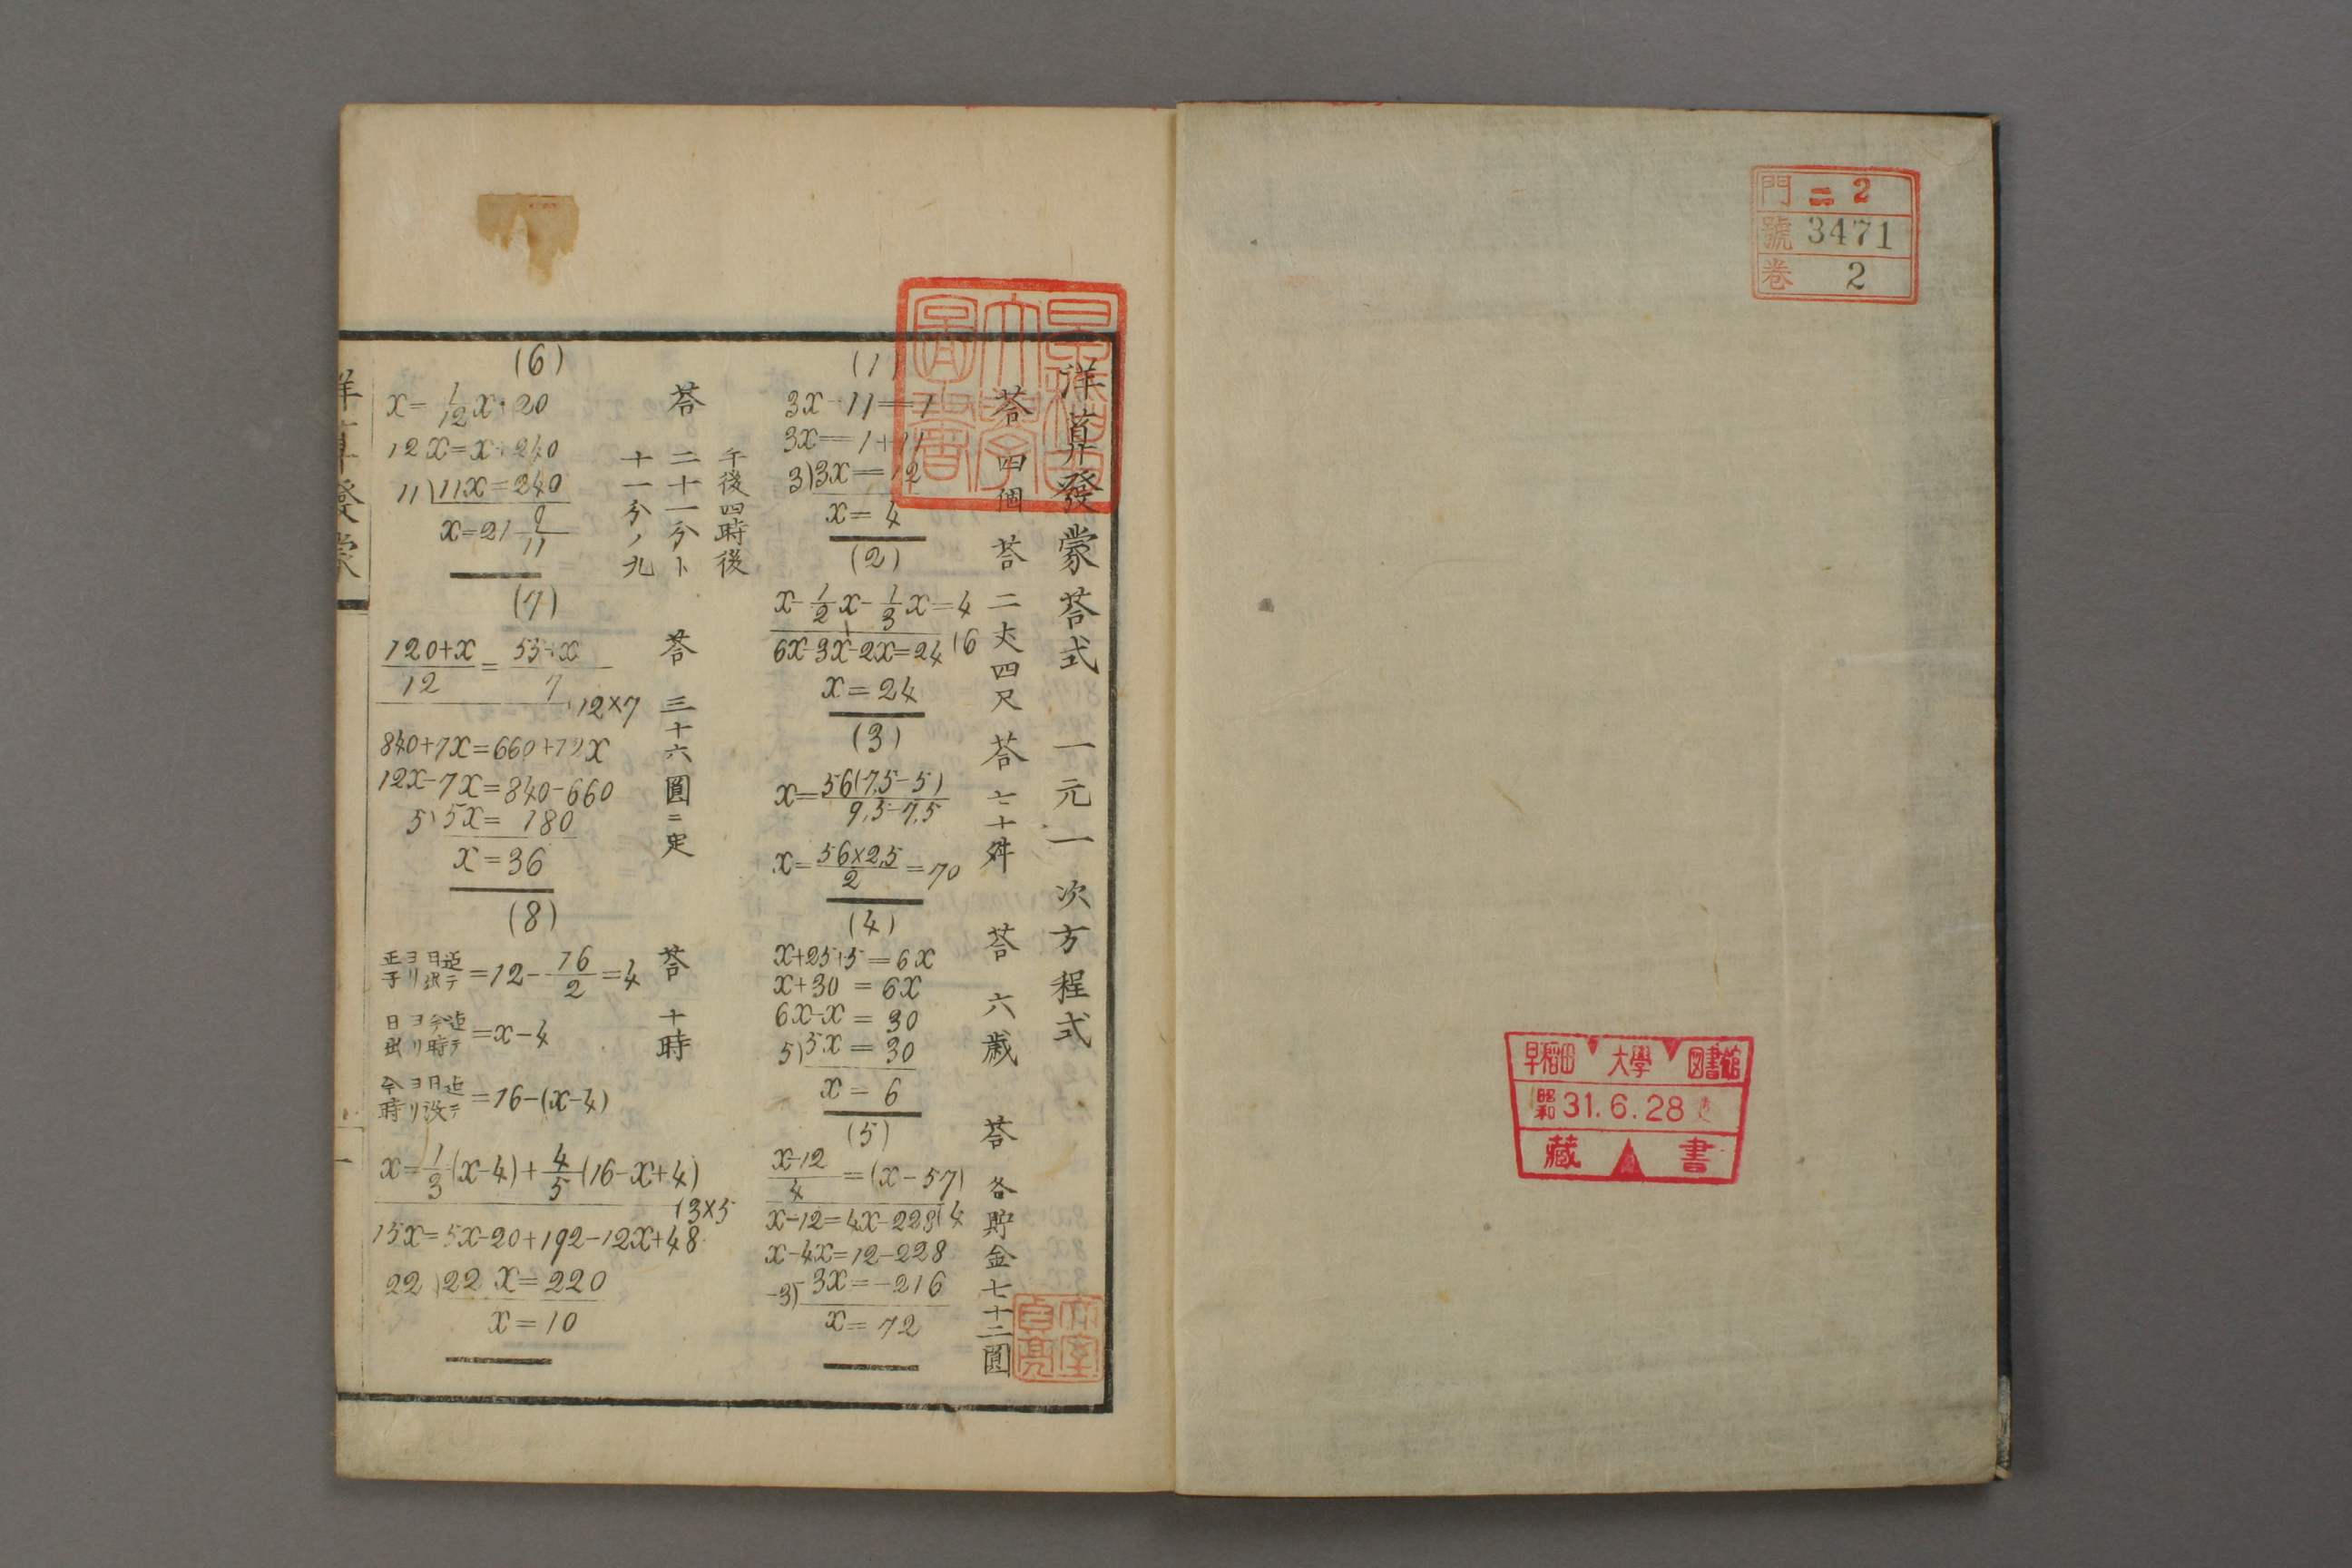 門 ニ 2
號 3471
卷 2
早稲田 大學 図書館
昭和 31.6.28
藏 書
洋算發蒙荅式 一元一次方程式
(1)
荅 四個
3x-11=1
3x=1+11
3)3x=12
x=4
(2)
荅 二丈四尺
x-1/2x-1/3x=4
6x-3x-2x=24 (6
x=24
(3)
荅 七十舛
x=56(7,5-5)/9,5-7,5
x=56×2,5/2=70
(4)
荅 六歳
x+25+5=6x
x+30=6x
6x-x=30
5)5x=30
x=6
(5)
荅 各貯金七十二圓
x-12/4=(x-57)
x-12=4x-228(4
x-4x=12-228
-3)-3x=-216
x=72
(6)
荅 午後四時後
二十一分ト
十一分ノ九
x=1/12x+20
12x=x+240
11)11x=240
x=21 9/11
(7)
荅 三十六圓ニ定
120+x/12=55+x/7
(12×7
840+7x=660+12x
12x-7x=840-660
5)5x=180
x=36
(8)
荅 十時
正子ヨリ日出迠テ=12-16/2=4
日出ヨリ今時迠テ=x-4
今時ヨリ日没迠テ=16-(x-4)
x=1/3(x-4)+4/5(16-x+4)
(3×5
15x=5x-20+192-12x+48
22)22x=220
x=10
洋算發蒙
一